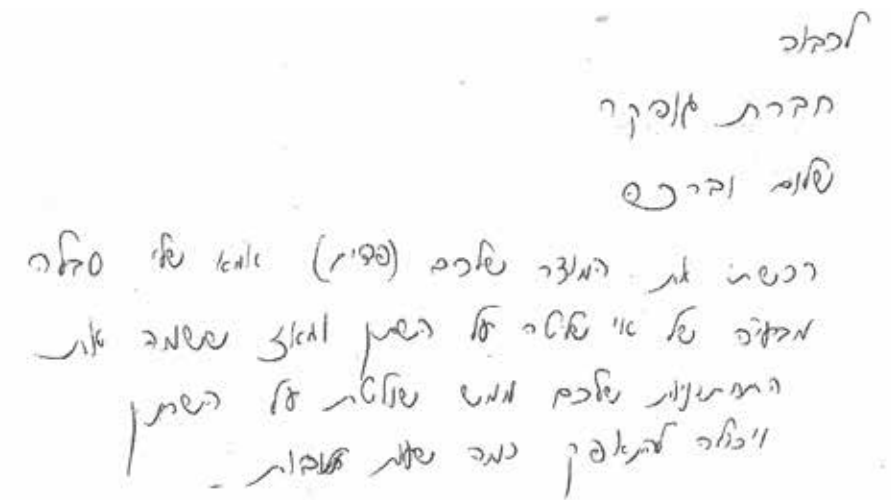 לכבוד
חברת גופקה
שלום וברכה
רכשתי את המוצר שלכם (פדית) אמא שלי סבלה
מבעיה של אי שליטה על השתן ומאז ששמה את
התחתונית שלכם ממש שולטת על השתן
ויכולה להתאפק כמה שעות טובות -